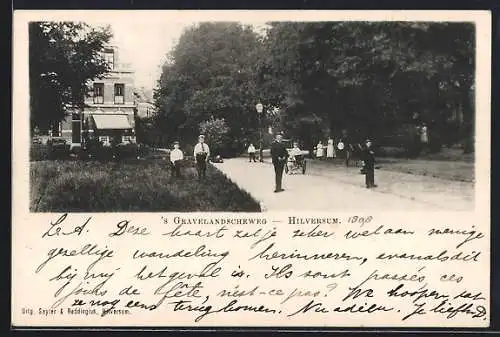 's GRAVELANDSCHEWEG — HILVERSUM. 1898
L. A. Deze kaart zal je zeker wel aan menige
gezellige wandeling herinneren, evenals dit
bij mij het geval is. Ils sont passés, ces
jours de fête, n'est-ce pas? We hoopen, dat
ze nog eens terug komen. Nu adieu. Je liefh. D.
Uitg. Seyler & Reddingius, Hilversum.